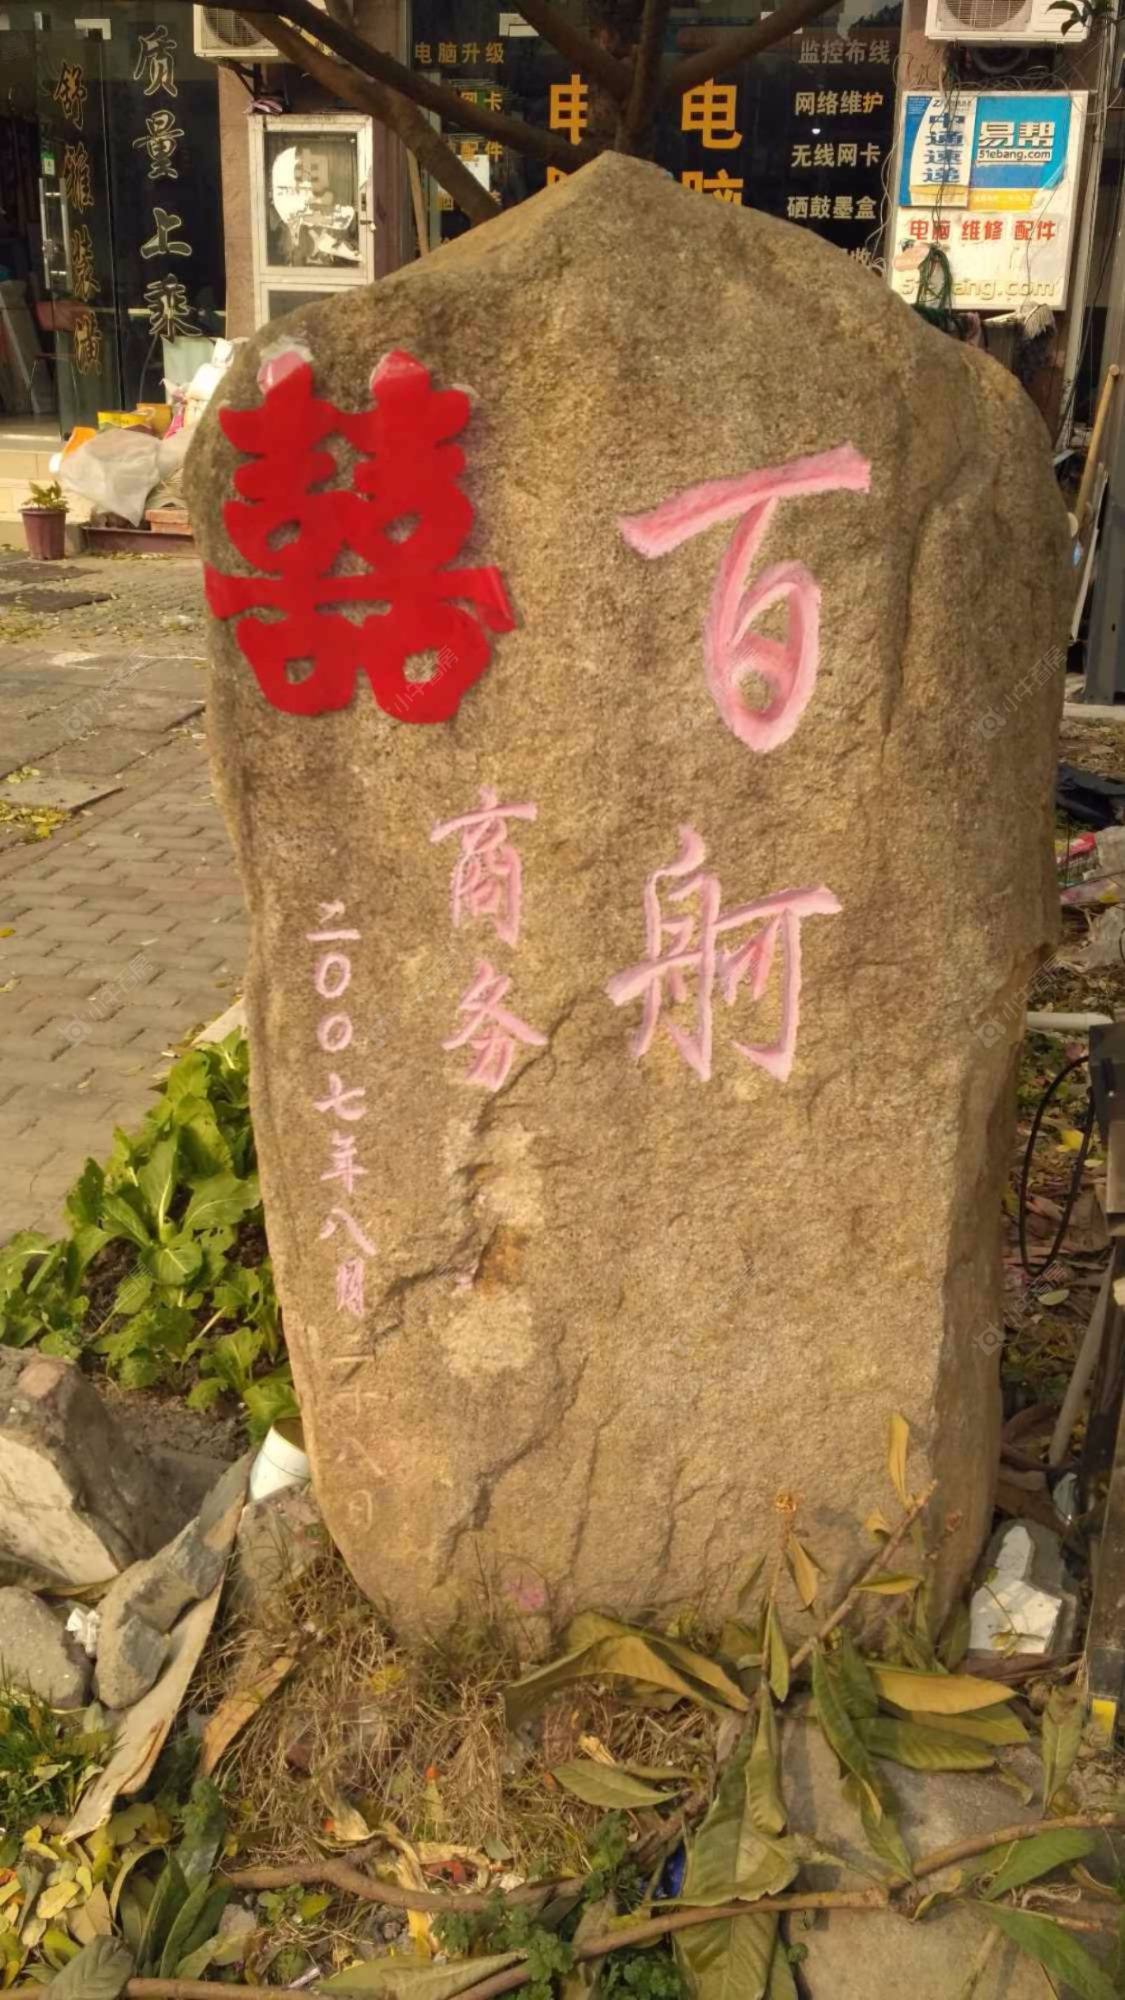 百舸
商务
二〇〇七年八月
二十八日
囍
质量上乘
舒雅装潢
电脑升级
网卡
配件
电
电脑
监控布线
网络维护
无线网卡
硒鼓墨盒
中通速递
易帮
51ebang.com
电脑 维修 配件
51ebang.com
小牛看房